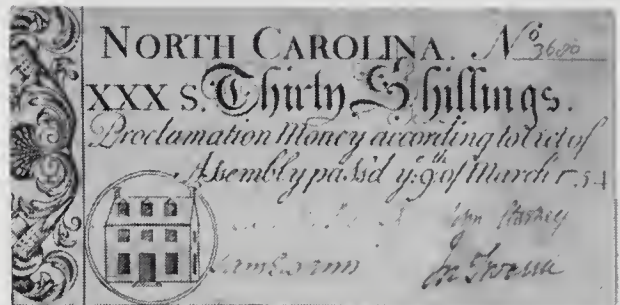 NORTH CAROLINA. No 3680
XXX S. Thirty Shillings.
Proclamation Money according to Act of
Assembly pass'd ye 9th of March 1754
John Starkey
Jn Swann